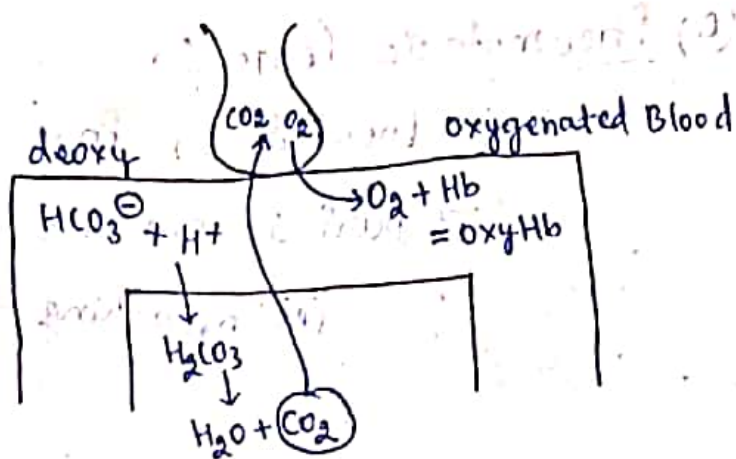 CO2 O2
deoxy
oxygenated Blood
HCO3⊖ + H+
O2 + Hb
= oxyHb
H2CO3
H2O + CO2